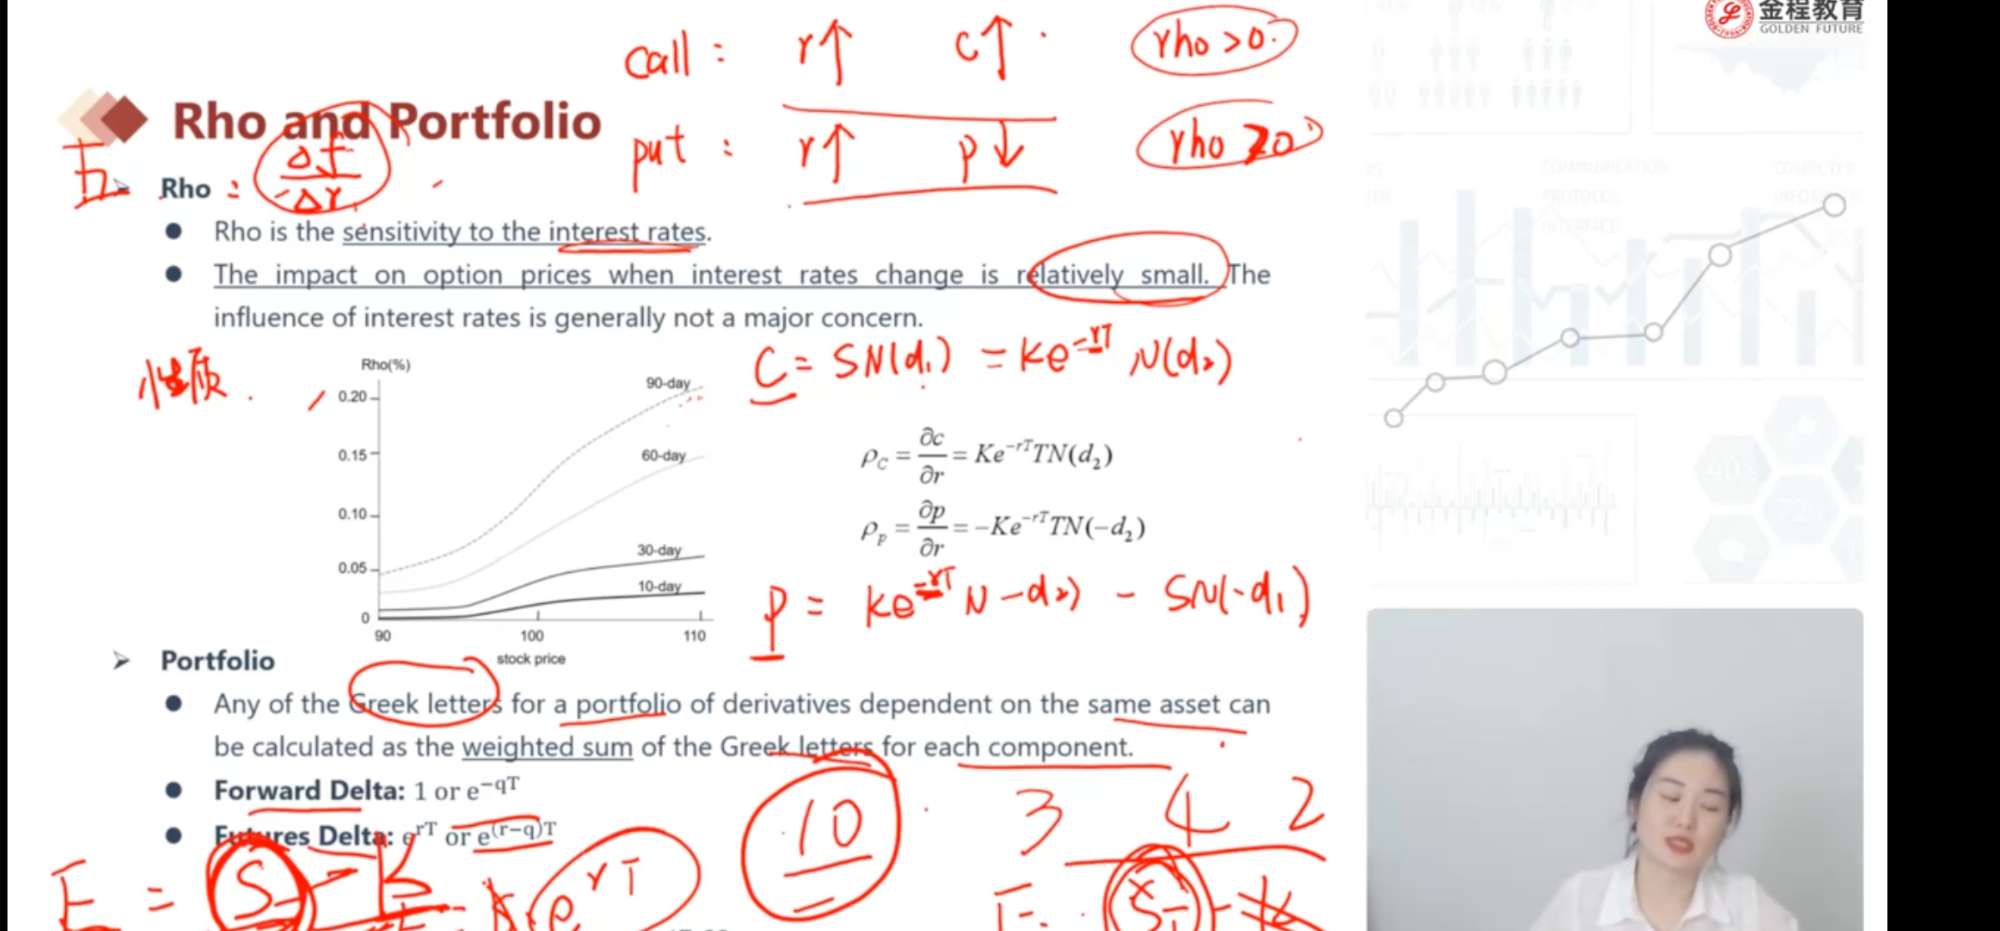 call : r↑ c↑ rho >0
金程教育
GOLDEN FUTURE
Rho and Portfolio
put : r↑ p↓ rho
Rho : Δf
Δr
Rho is the sensitivity to the interest rates.
The impact on option prices when interest rates change is relatively small. The
influence of interest rates is generally not a major concern.
性质
C = SN(d₁) = Ke^-rT N(d₂)
Rho(%)
0.20
0.15
0.10
0.05
0
90-day
60-day
30-day
10-day
90 100 110
stock price
ρc = ∂c/∂r = Ke^-rT TN(d₂)
ρp = ∂p/∂r = -Ke^-rT TN(-d₂)
P = Ke^-rT N -d₂) - SN(-d₁)
Portfolio
Any of the Greek letters for a portfolio of derivatives dependent on the same asset can
be calculated as the weighted sum of the Greek letters for each component.
Forward Delta: 1 or e^-qT
Futures Delta: e^rT or e^(r-q)T
10 3 4 2